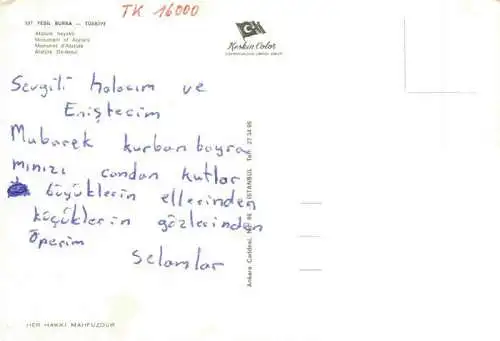 TK 16000
537 YEŞİL BURSA — TÜRKİYE
Atatürk heykeli
Monument of Atatürk
Monument d'Atatürk
Atatürk Denkmal
Keskin Color
Sevgili halacım ve
Eniştecim
Mubarek kurban bayra
mınızı candan kutlar
büyüklerin ellerinden
küçüklerin gözlerinden
öperim
Selamlar
Ankara Caddesi, No. İSTANBUL Tel: 27 34 95
HER HAKKI MAHFUZDUR